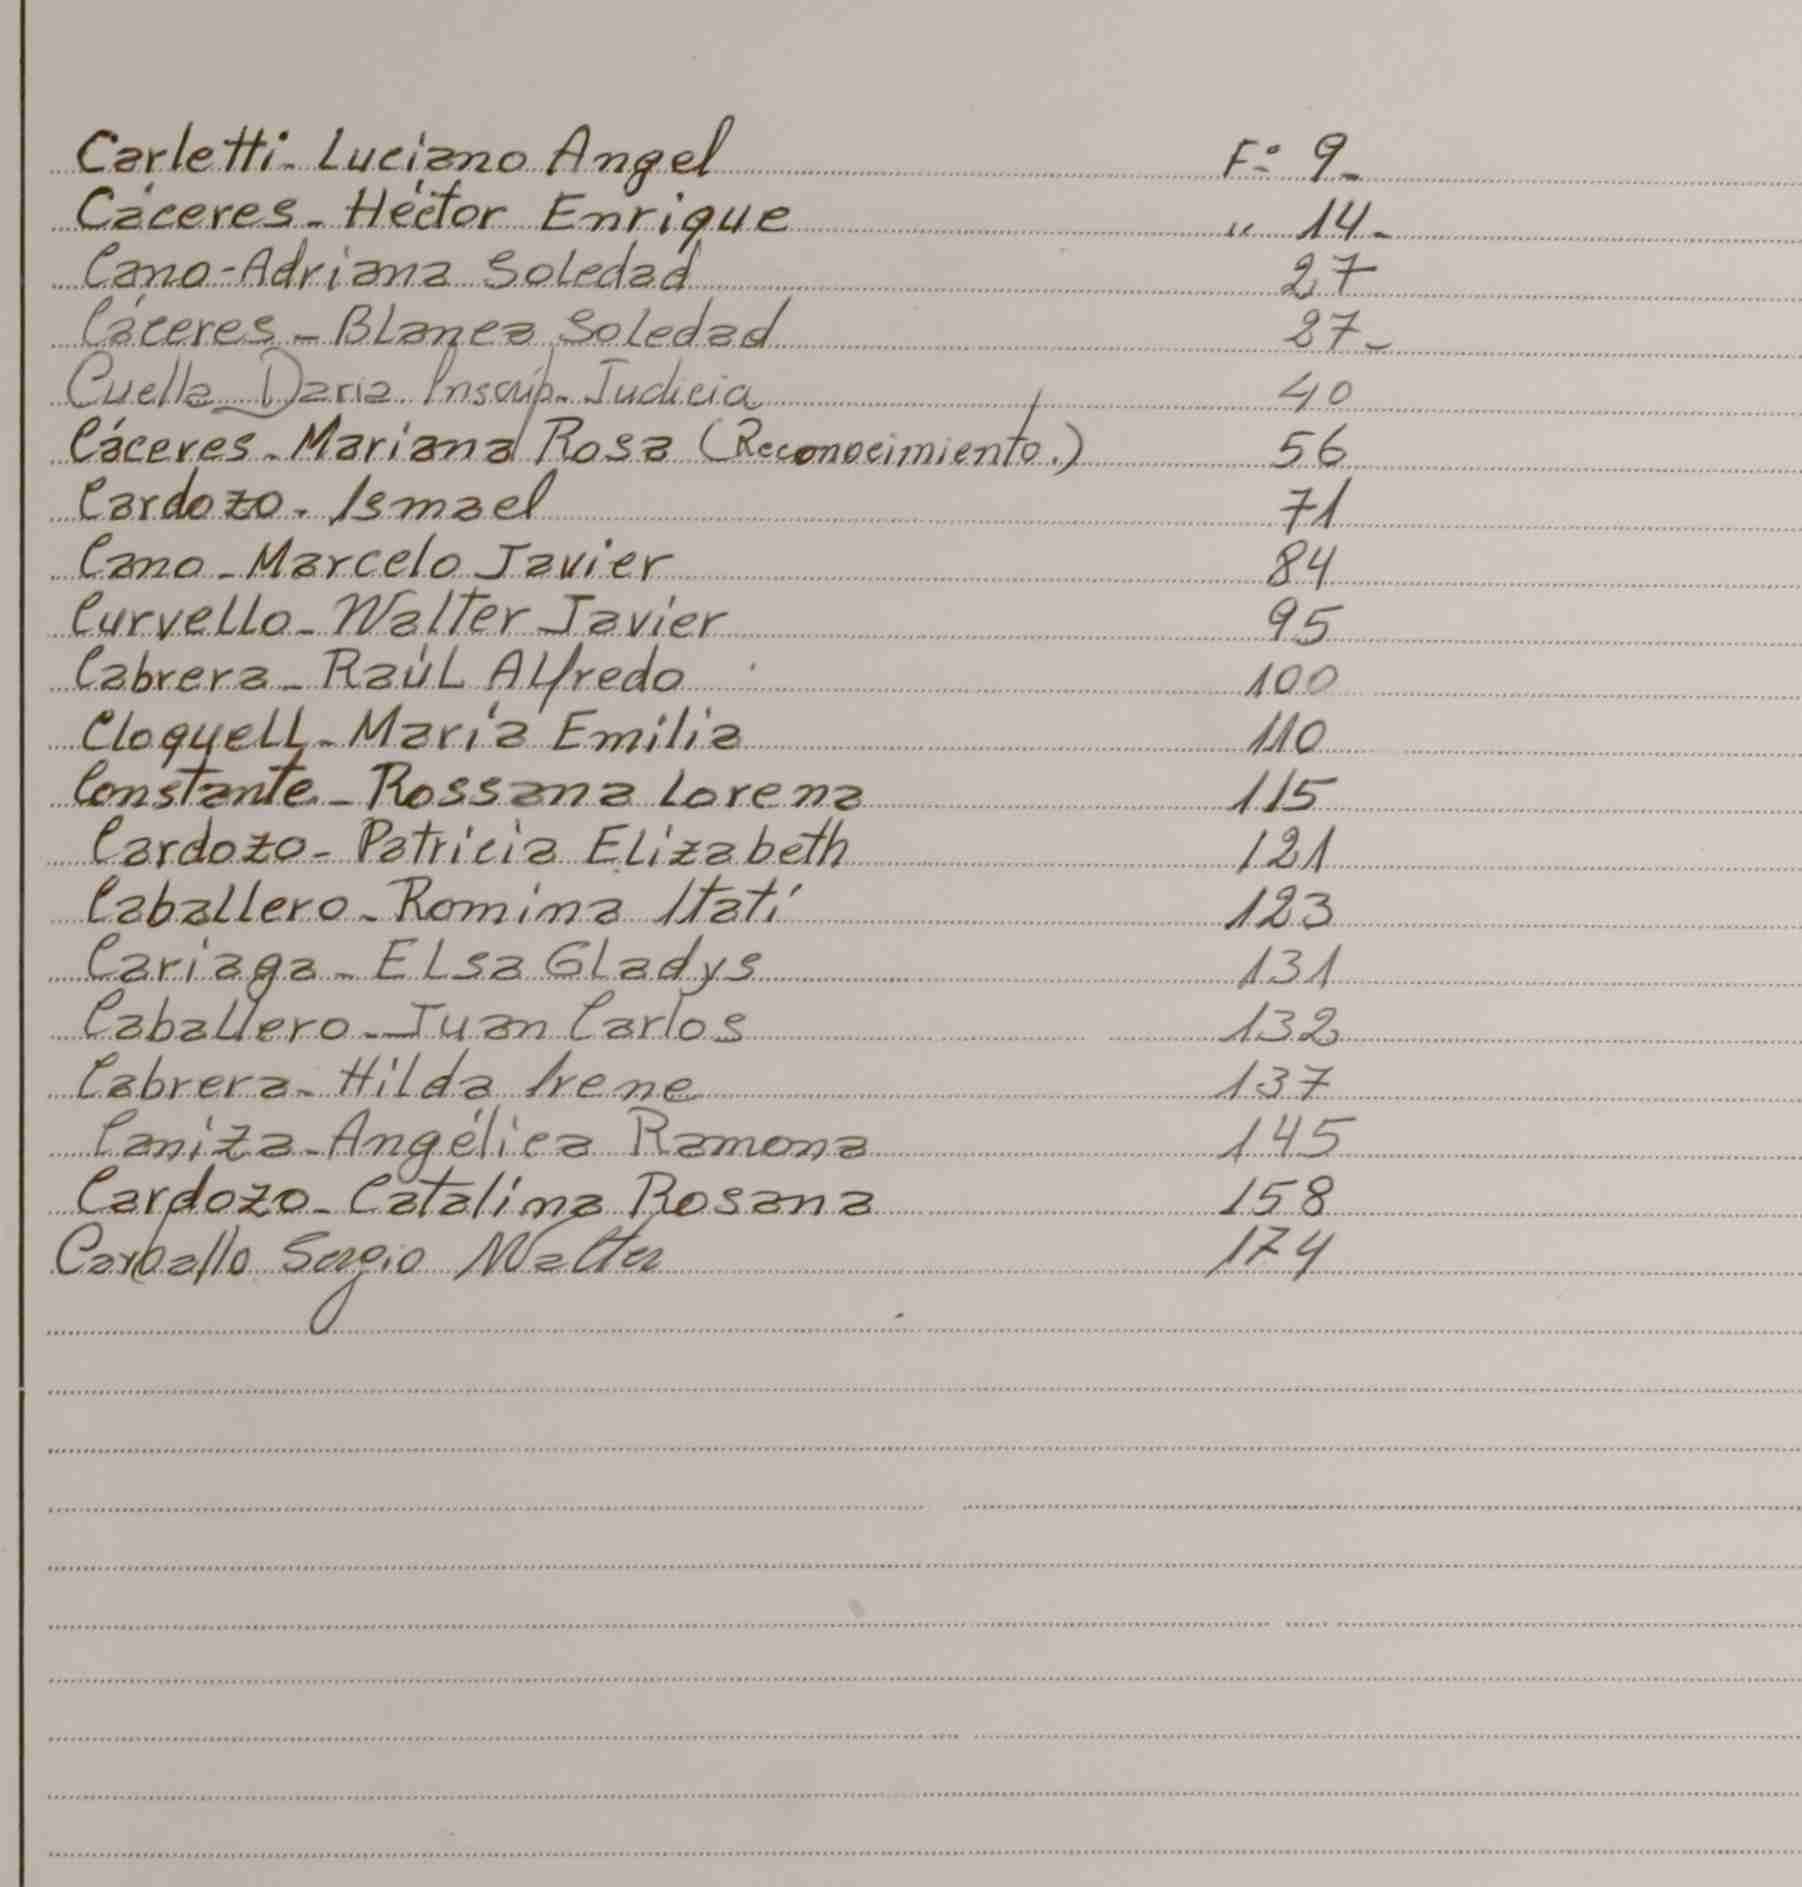 Carletti- Luciano Angel F:º 9-
Cáceres- Héctor Enrique " 14-
Cano-Adriana Soledad 27
Cáceres- Blanca Soledad 27-
Cuella Daria. Inscrip. Judicia 40
Cáceres- Mariana Rosa (Reconocimiento.) 56
Cardozo- Ismael 71
Cano- Marcelo Javier 84
Curvello- Walter Javier 95
Cabrera- Raúl Alfredo 100
Cloquell- María Emilia 110
Constante- Rossana Lorena 115
Cardozo- Patricia Elizabeth 121
Caballero- Romina Itatí 123
Cariaga- Elsa Gladys 131
Caballero- Juan Carlos 132
Cabrera- Hilda Irene 137
Caniza- Angélica Ramona 145
Cardozo- Catalina Rosana 158
Carballo Sergio Walter 174